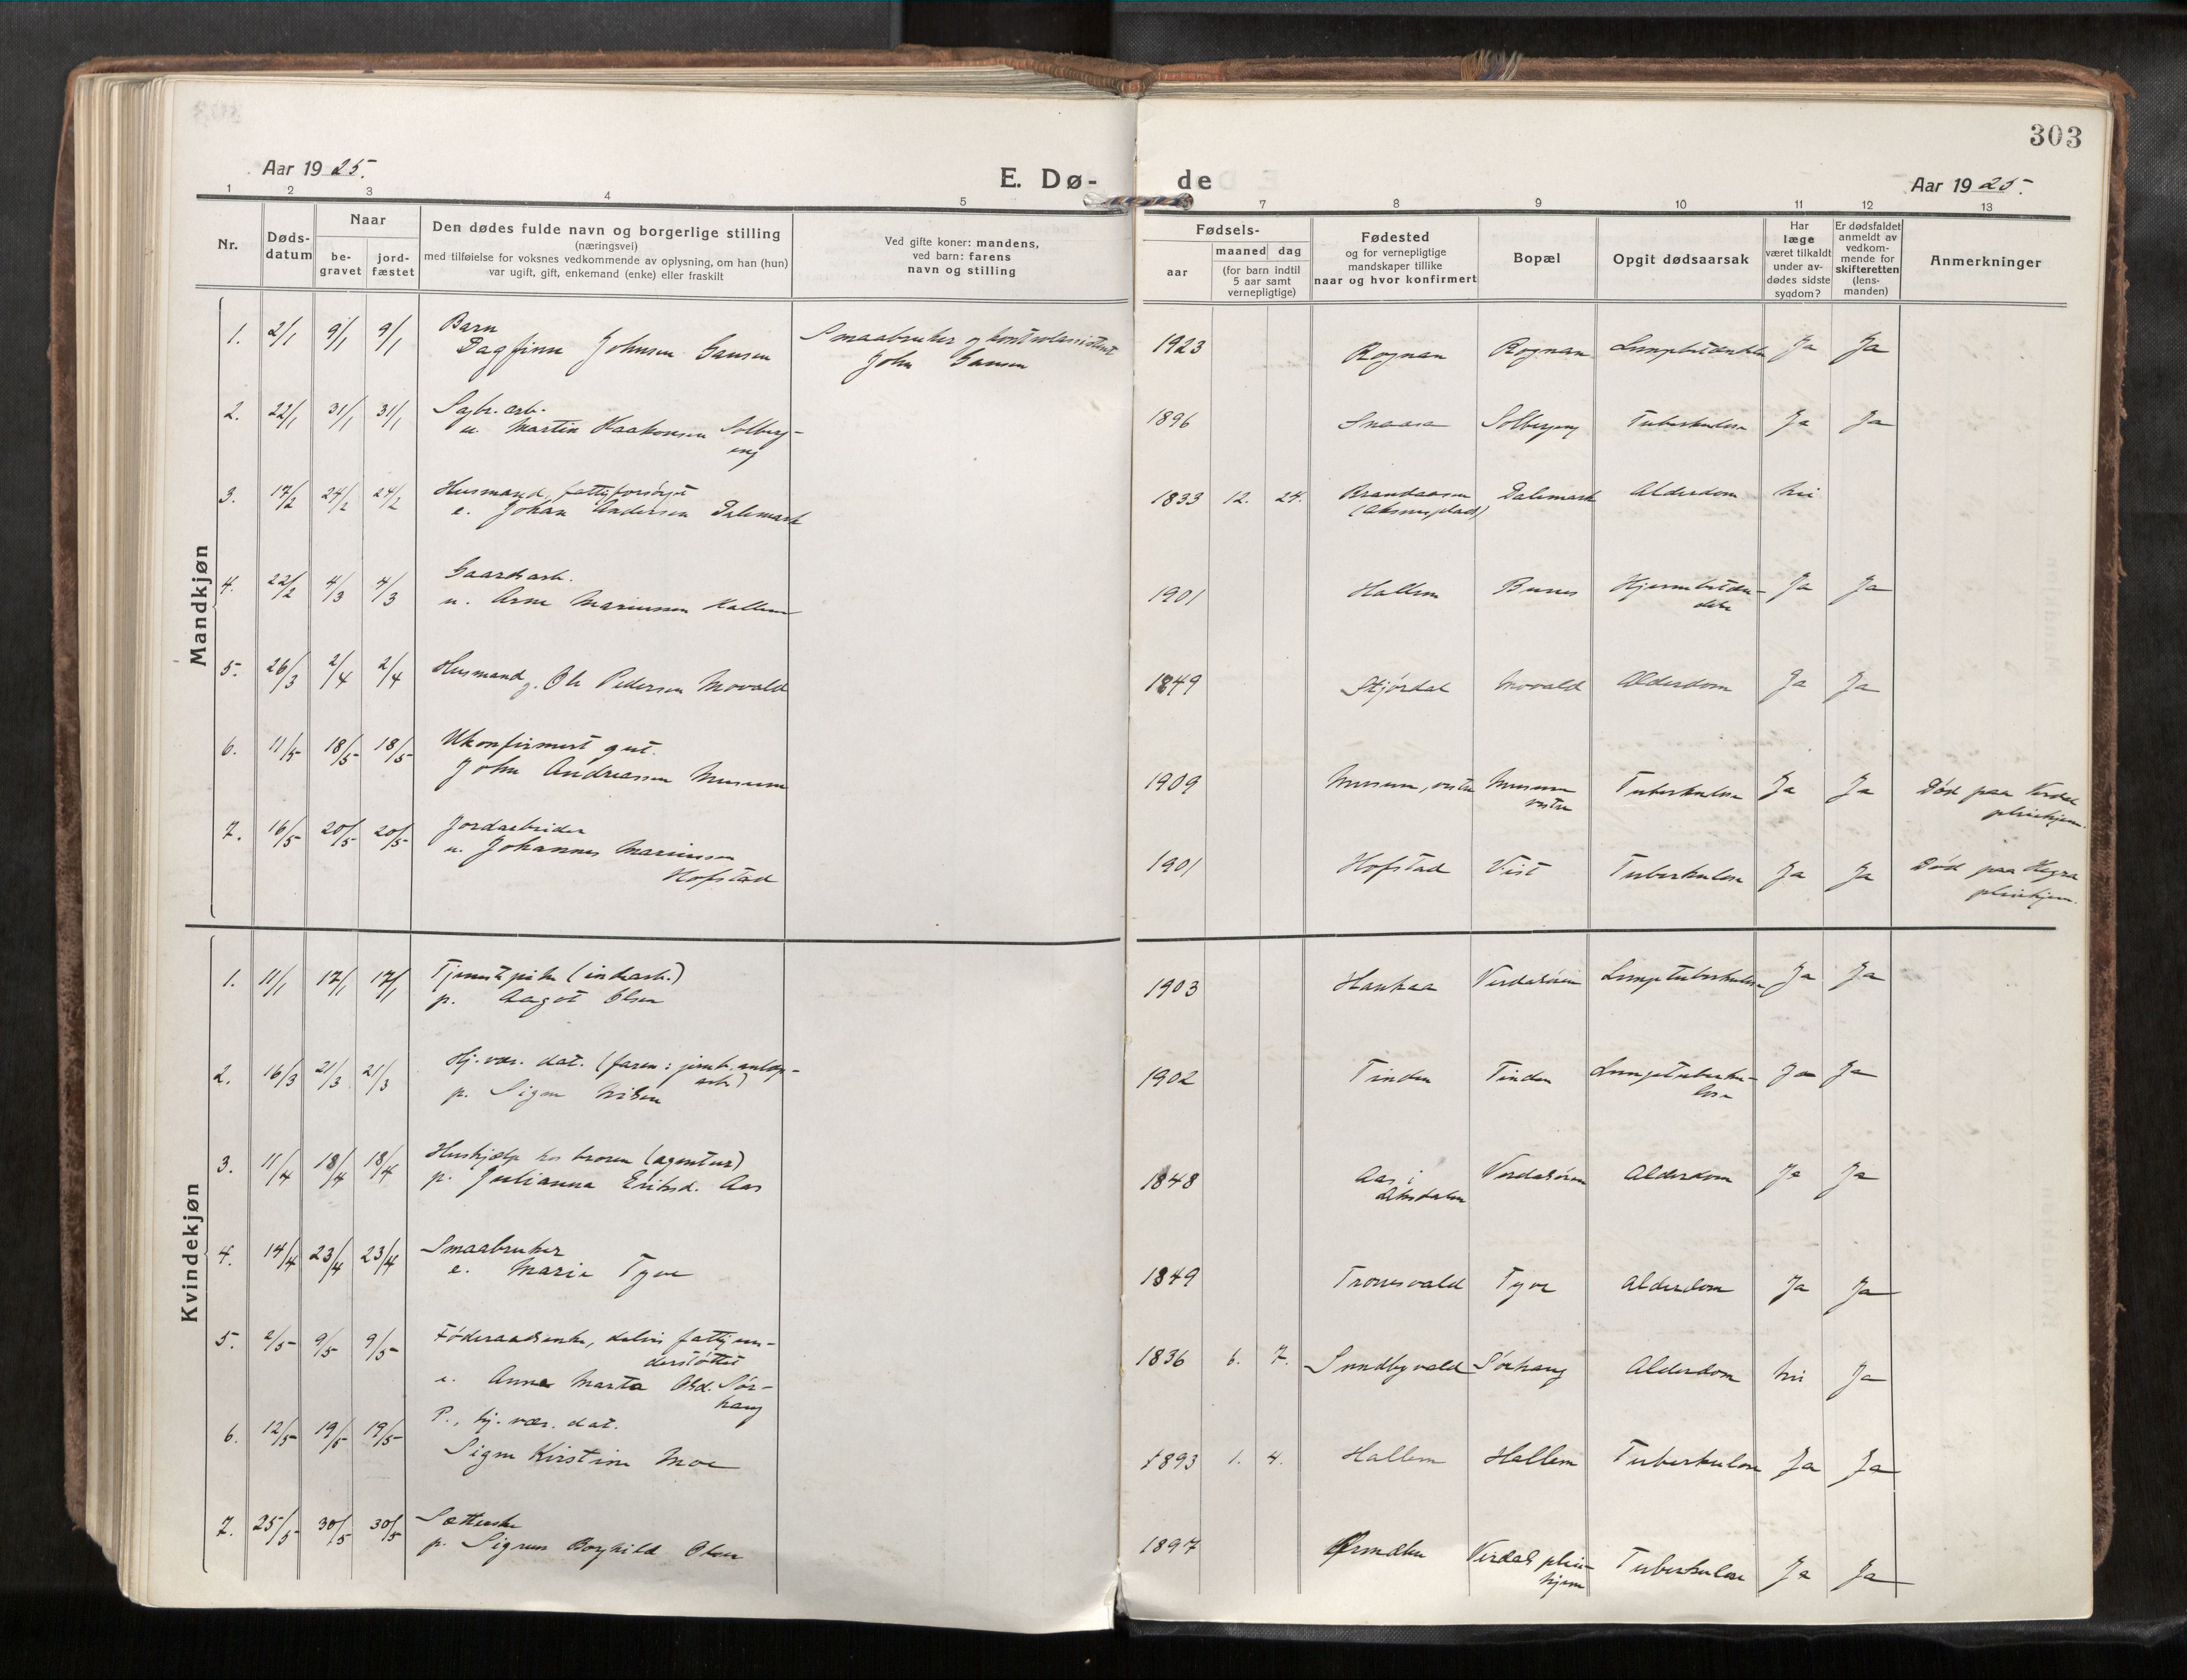 303
Aar 1925.
E. Dø-
de
Aar 1925.
1 2 3 4 5 7 8 9 10 11 12 13
Nr.
Døds-
datum
Naar
be-
gravet
jord-
fæstet
Den dødes fulde navn og borgerlige stilling
(næringsvei)
med tilføielse for voksnes vedkommende av oplysning, om han (hun)
var ugift, gift, enkemand (enke) eller fraskilt
Ved gifte koner: mandens,
ved barn: farens
navn og stilling
Fødsels-
aar
maaned dag
(for barn indtil
5 aar samt
vernepligtige)
Fødested
og for vernepligtige
mandskaper tillike
naar og hvor konfirmert
Bopæl
Opgit dødsaarsak
Har
læge
været tilkaldt
under av-
dødes sidste
sygdom?
Er dødsfaldet
anmeldt av
vedkom-
mende for
skifteretten
(lens-
manden)
Anmerkninger
Mandkjøn
1. 2/1 9/1 9/1 Barn
Dagfinn Johnsen Hansen
Smaabruker og kontrolassistent
John Hansen
1923 Rognan Rognan Ja Ja
2. 22/1 31/1 31/1 Sagbr. arb.
u. Martin Haakonsen Solberg-
eng
1896 Snaasa Solbergeng Tuberkulose Ja Ja
3. 17/2 24/2 24/2 Husmand, fattigforsørget
e. Johan Andersen Dalemark
1833 12. 24. Brandaasen Dalemark Alderdom Nei
4. 22/2 4/3 4/3 Gaardsarb.
u. Arne Mariussen Hallem
1901 Hallem Bunes Hjernebetæn-
delse Ja Ja
5. 26/3 2/4 2/4 Husmand
g. Ole Pedersen Movald
1849 Stjørdal Movald Alderdom Ja Ja
6. 11/5 18/5 18/5 Ukonfirmert gut.
John Andreassen Musum
1909 Musum, vestre Musum
vestre Tuberkulose Ja Ja Død paa Verdal
pleiehjem.
7. 16/5 20/5 20/5 Jordarbeider
u. Johannes Mariusson
Hofstad
1901 Hofstad Vist Tuberkulose Ja Ja Død paa Hegra
pleiehjem.
Kvindekjøn
1. 11/1 17/1 17/1 Tjenestepike (indearb.)
p. Aagot Olsen
1903 Haukaa Verdalsøren Lungetuberkulose Ja Ja
2. 16/3 21/3 21/3 Hj. vær. dat. (faren: jernb. anlegs-
arb.)
p. Signe Nilsen
1902 Tinden Tinden Lungetuberku-
lose Ja Ja
3. 11/4 18/4 18/4 Hushjælp hos broren (agentur)
p. Julianna Eriksd. Aas
1848 Aas i
Verdalsøren Alderdom Ja Ja
4. 14/4 23/4 23/4 Smaabruker
e. Marie Tyve
1849 Tronesvald Tyve Alderdom Ja Ja
5. 2/5 9/5 9/5 Føderaadsenke, delvis fattigun-
derstøttet
e. Anna Marta Olsd. Sør-
haug
1836 6. 7. Sundbyvald Sørhaug Alderdom Nei Ja
6. 12/5 19/5 19/5 P., hj. vær. dat.
Signe Kirstine Moe
1893 1. 4. Hallem Hallem Tuberkulose Ja Ja
7. 25/5 30/5 30/5 Sætterske
p. Sigrun Borghild Olsen
1897 Ørmelen Verdal pleie-
hjem Tuberkulose Ja Ja